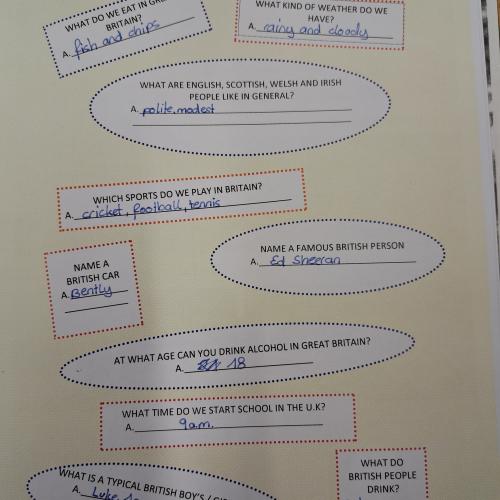 WHAT DO WE EAT IN GREAT
BRITAIN?
A. fish and chips
WHAT KIND OF WEATHER DO WE
HAVE?
A. rainy and cloody
WHAT ARE ENGLISH, SCOTTISH, WELSH AND IRISH
PEOPLE LIKE IN GENERAL?
A. polite, modest
WHICH SPORTS DO WE PLAY IN BRITAIN?
A. cricket, football, tennis
NAME A FAMOUS BRITISH PERSON
A. Ed Sheeran
NAME A
BRITISH CAR
A. Bently
AT WHAT AGE CAN YOU DRINK ALCOHOL IN GREAT BRITAIN?
A. 18
WHAT TIME DO WE START SCHOOL IN THE U.K?
A. 9am.
WHAT DO
BRITISH PEOPLE
DRINK?
WHAT IS A TYPICAL BRITISH BOY'S /
A. Luke,